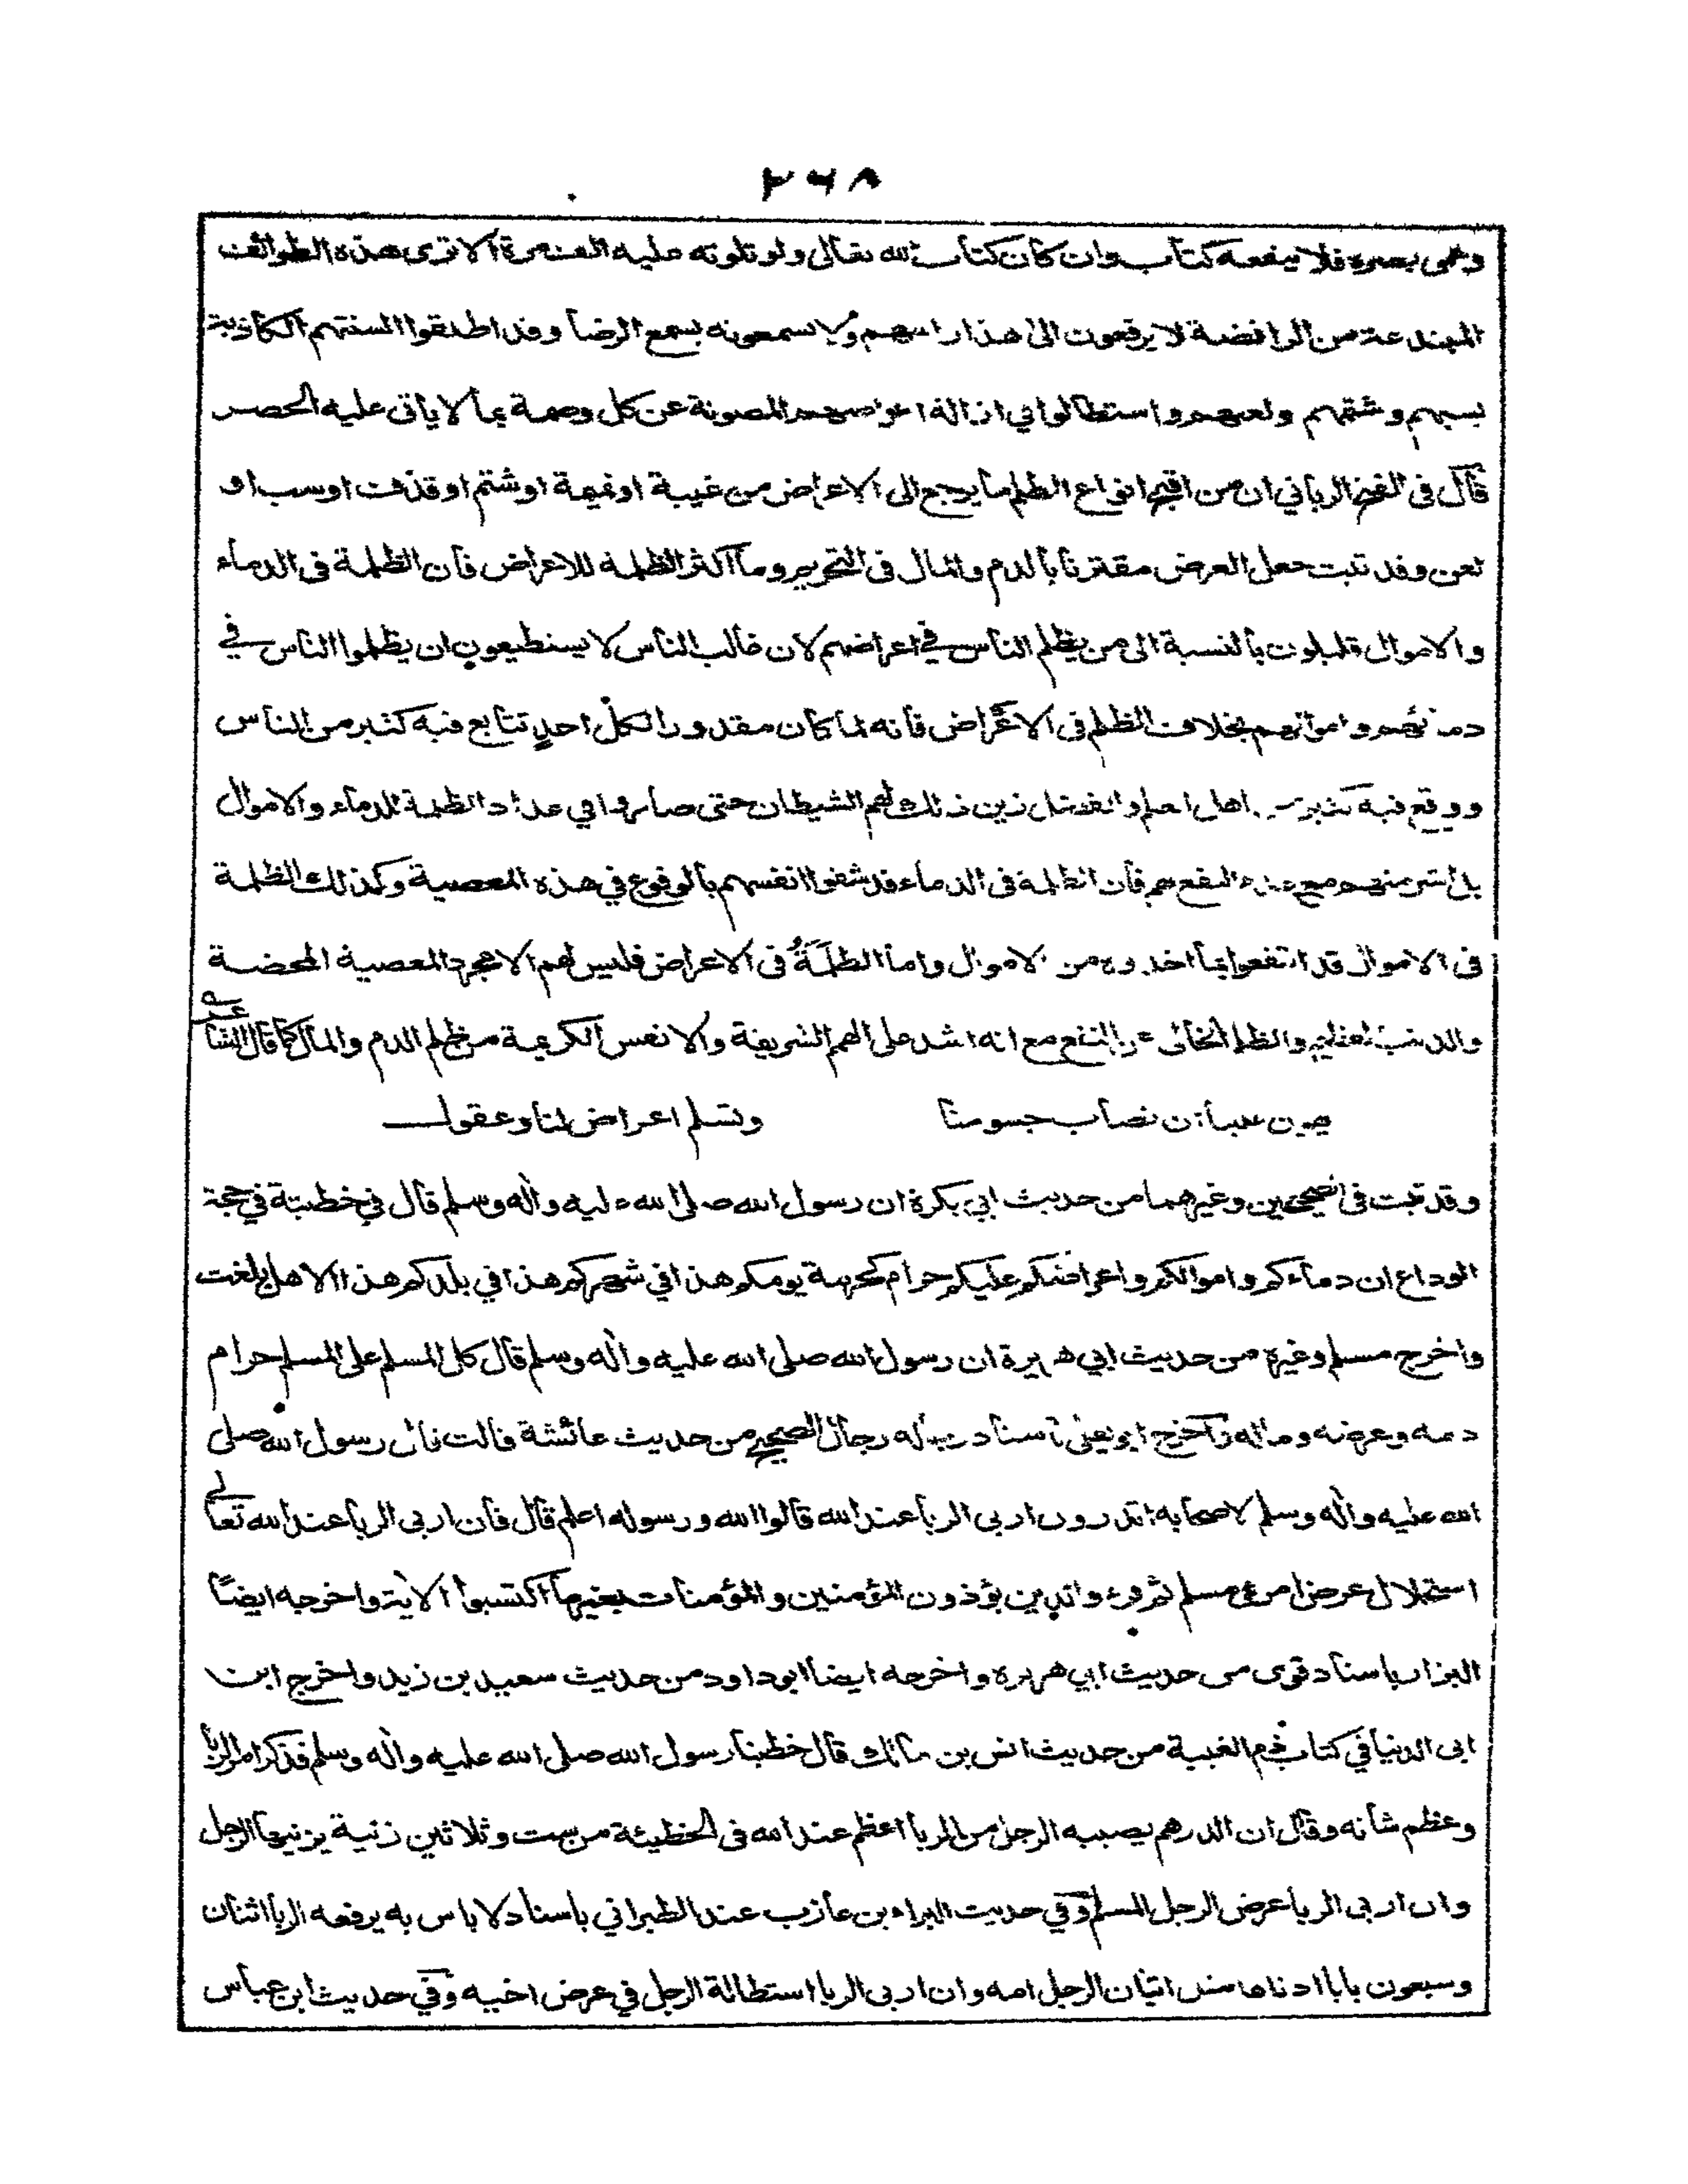 ٢٦٨
وعمى بصره فلا ينفعه كتاب وان كان كتاب الله تعالى ولو تلوته عليه الف مرة الا ترى هذه الطوائف
المبتدعة من الرافضة لا يرفعون الى هذا راسهم ولا يسمعونه بسمع الرضا وقد اطلقوا السنتهم الكاذبة
بسبهم وشتمهم ولعنهم واستطالوا في ازالة اعراضهم المصونة عن كل وصمة بما لا ياتى عليه الحصر
قال فى الفتح الربانى ان من اقبح انواع الظلم ما يرجع الى الاعراض من غيبة او نميمة او شتم او قذف او سب او
لعن وقد ثبت جعل العرض مقترنا بالدم والمال فى التحريم وما اكثر الظلمة للاعراض فان الظلمة فى الدماء
والاموال قليلون بالنسبة الى من يظلم الناس في اعراضهم لان غالب الناس لا يستطيعون ان يظلموا الناس في
دمائهم واموالهم بخلاف الظلم فى الاعراض فانه لما كان مقدورا لكل احد تتابع فيه كثير من الناس
ووقع فيه كثير من اهل العلم والفضل زين ذلك لهم الشيطان حتى صاروا في عداد الظلمة للدماء والاموال
بل اشر منهم مع عدم النفع لهم فان الظلمة فى الدماء قد شفوا انفسهم بالوقوع في هذه المعصية وكذلك الظلمة
فى الاموال قد انتفعوا بما اخذوه من الاموال واما الظلمة فى الاعراض فليس لهم الا مجرد المعصية المحضة
والذنب العظيم والظلم الخالى عن النفع مع انه اشد على الهمم الشريفة والانفس الكريمة من ظلم الدم والمال كما قال الشاعر
يهون علينا ان تصاب جسومنا وتسلم اعراض لنا وعقول
وقد ثبت فى الصحيحين وغيرهما من حديث ابي بكرة ان رسول الله صلى الله عليه واله وسلم قال في خطبتة في حجة
الوداع ان دماءكم واموالكم واعراضكم عليكم حرام كحرمة يومكم هذا في شهركم هذا في بلدكم هذا الا هل بلغت
واخرج مسلم وغيره من حديث ابي هريرة ان رسول الله صلى الله عليه واله وسلم قال كل المسلم على المسلم حرام
دمه وعرضه وماله واخرج ابو يعلى باسناد رجاله رجال الصحيح من حديث عائشة قالت قال رسول الله صلى
الله عليه واله وسلم لاصحابه اتدرون اربى الربا عند الله قالوا الله ورسوله اعلم قال فان اربى الربا عند الله تعالى
استحلال عرض امرئ مسلم ثم قرء والذين يؤذون المؤمنين والمؤمنات بغير ما اكتسبوا الاية واخرجه ايضًا
البزار باسناد قوى من حديث ابي هريره واخرجه ايضا ابو داود من حديث سعيد بن زيد واخرج ابن
ابى الدنيا في كتاب ذم الغيبة من حديث انس بن مالك قال خطبنا رسول الله صلى الله عليه واله وسلم فذكر امر الربا
وعظم شأنه وقال ان الدرهم يصيبه الرجل من الربا اعظم عند الله فى الخطيئة من ست وثلاثين زنية يزنيها الرجل
وان اربى الربا عرض الرجل المسلم وفي حديث البراء بن عازب عند الطبراني باسناد لا باس به يرفعه الربا اثنان
وسبعون بابا ادناها مثل اتيان الرجل امه وان اربى الربا استطالة الرجل في عرض اخيه وفي حديث ابن عباس